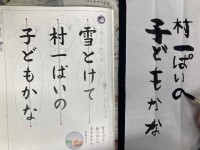 雪とけて
村一ぱいの
子どもかな
村一ぱいの
子どもかな